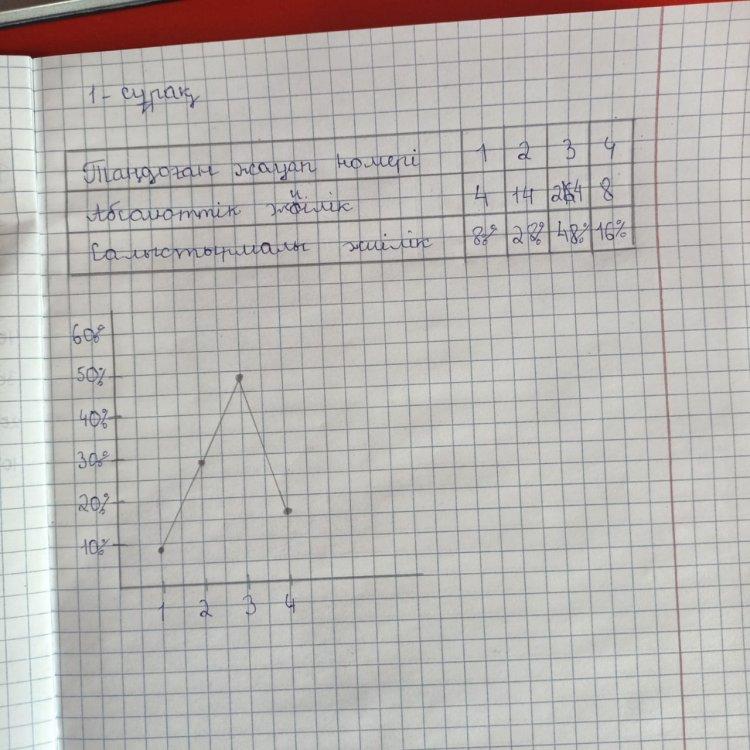 1 - сұрақ
Таңдаған жауап номері 1 2 3 4
Абсолюттік жиілік 4 14 24 8
Салыстырмалы жиілік 8% 28% 48% 16%
60%
50%
40%
30%
20%
10%
1 2 3 4